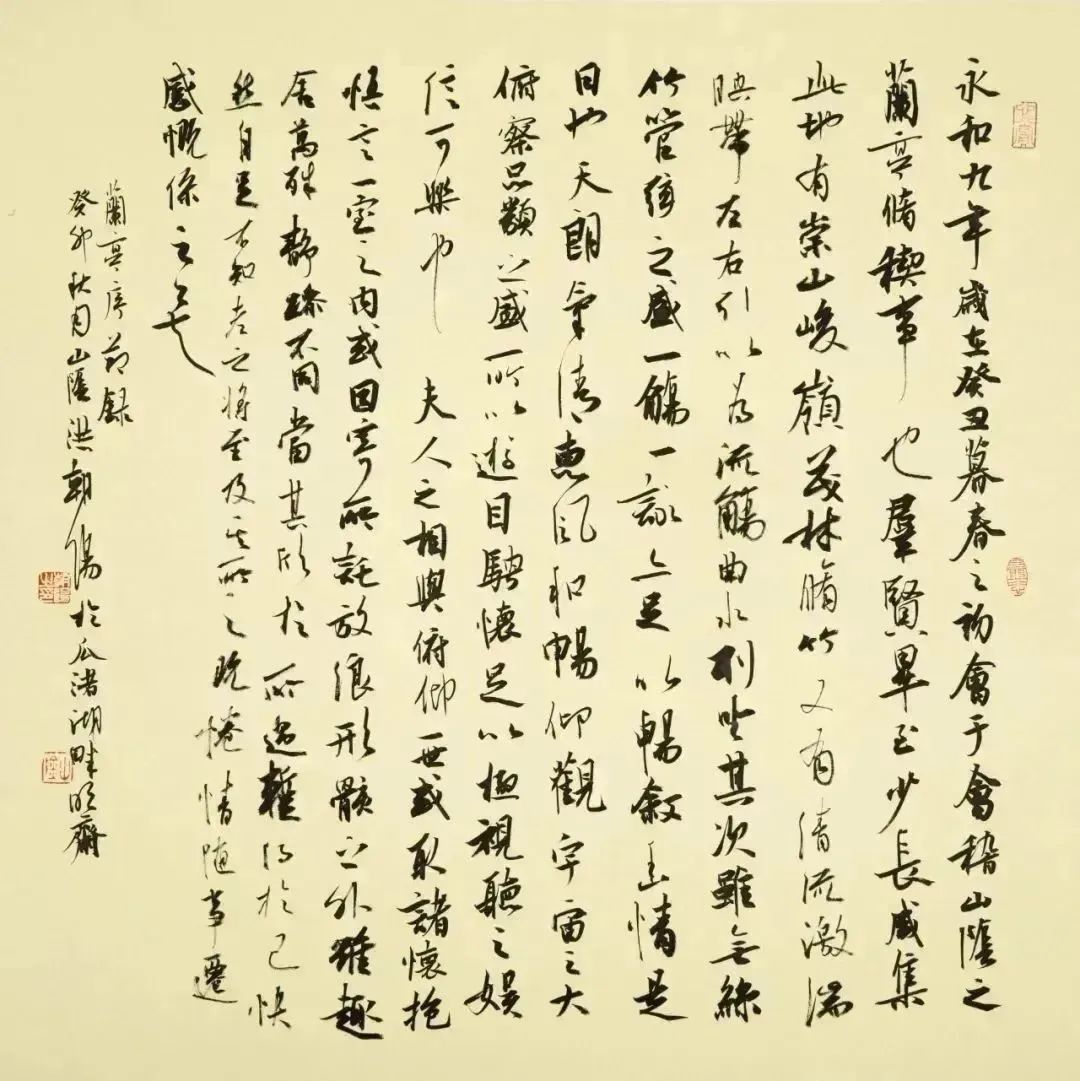 永和九年歲在癸丑暮春之初會于會稽山陰之
蘭亭脩稧事也羣賢畢至少長咸集
此地有崇山峻嶺茂林脩竹又有清流激湍
暎帶左右引以為流觴曲水列坐其次雖無絲
竹管絃之盛一觴一詠亦足以暢敘幽情是
日也天朗氣清惠風和暢仰觀宇宙之大
俯察品類之盛所以遊目騁懷足以極視聽之娛
信可樂也 夫人之相與俯仰一世或取諸懷抱
悟言一室之內或因寄所託放浪形骸之外雖趣
舍萬殊靜躁不同當其欣於所遇暫得於己快
然自足不知老之將至及其所之既惓情隨事遷
感慨係之矣
蘭亭序節錄
癸卯秋月山陰洪朝陽於瓜渚湖畔明齋